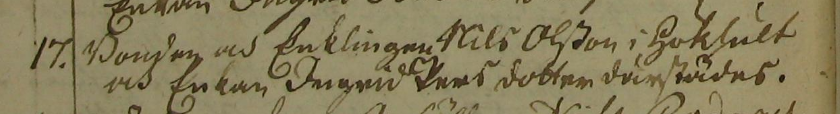 Enkan Ingrid
17. Bonden och Enklingen Nils Olsson i Hokhult
och Enkan Ingrid Pers dotter därstädes.